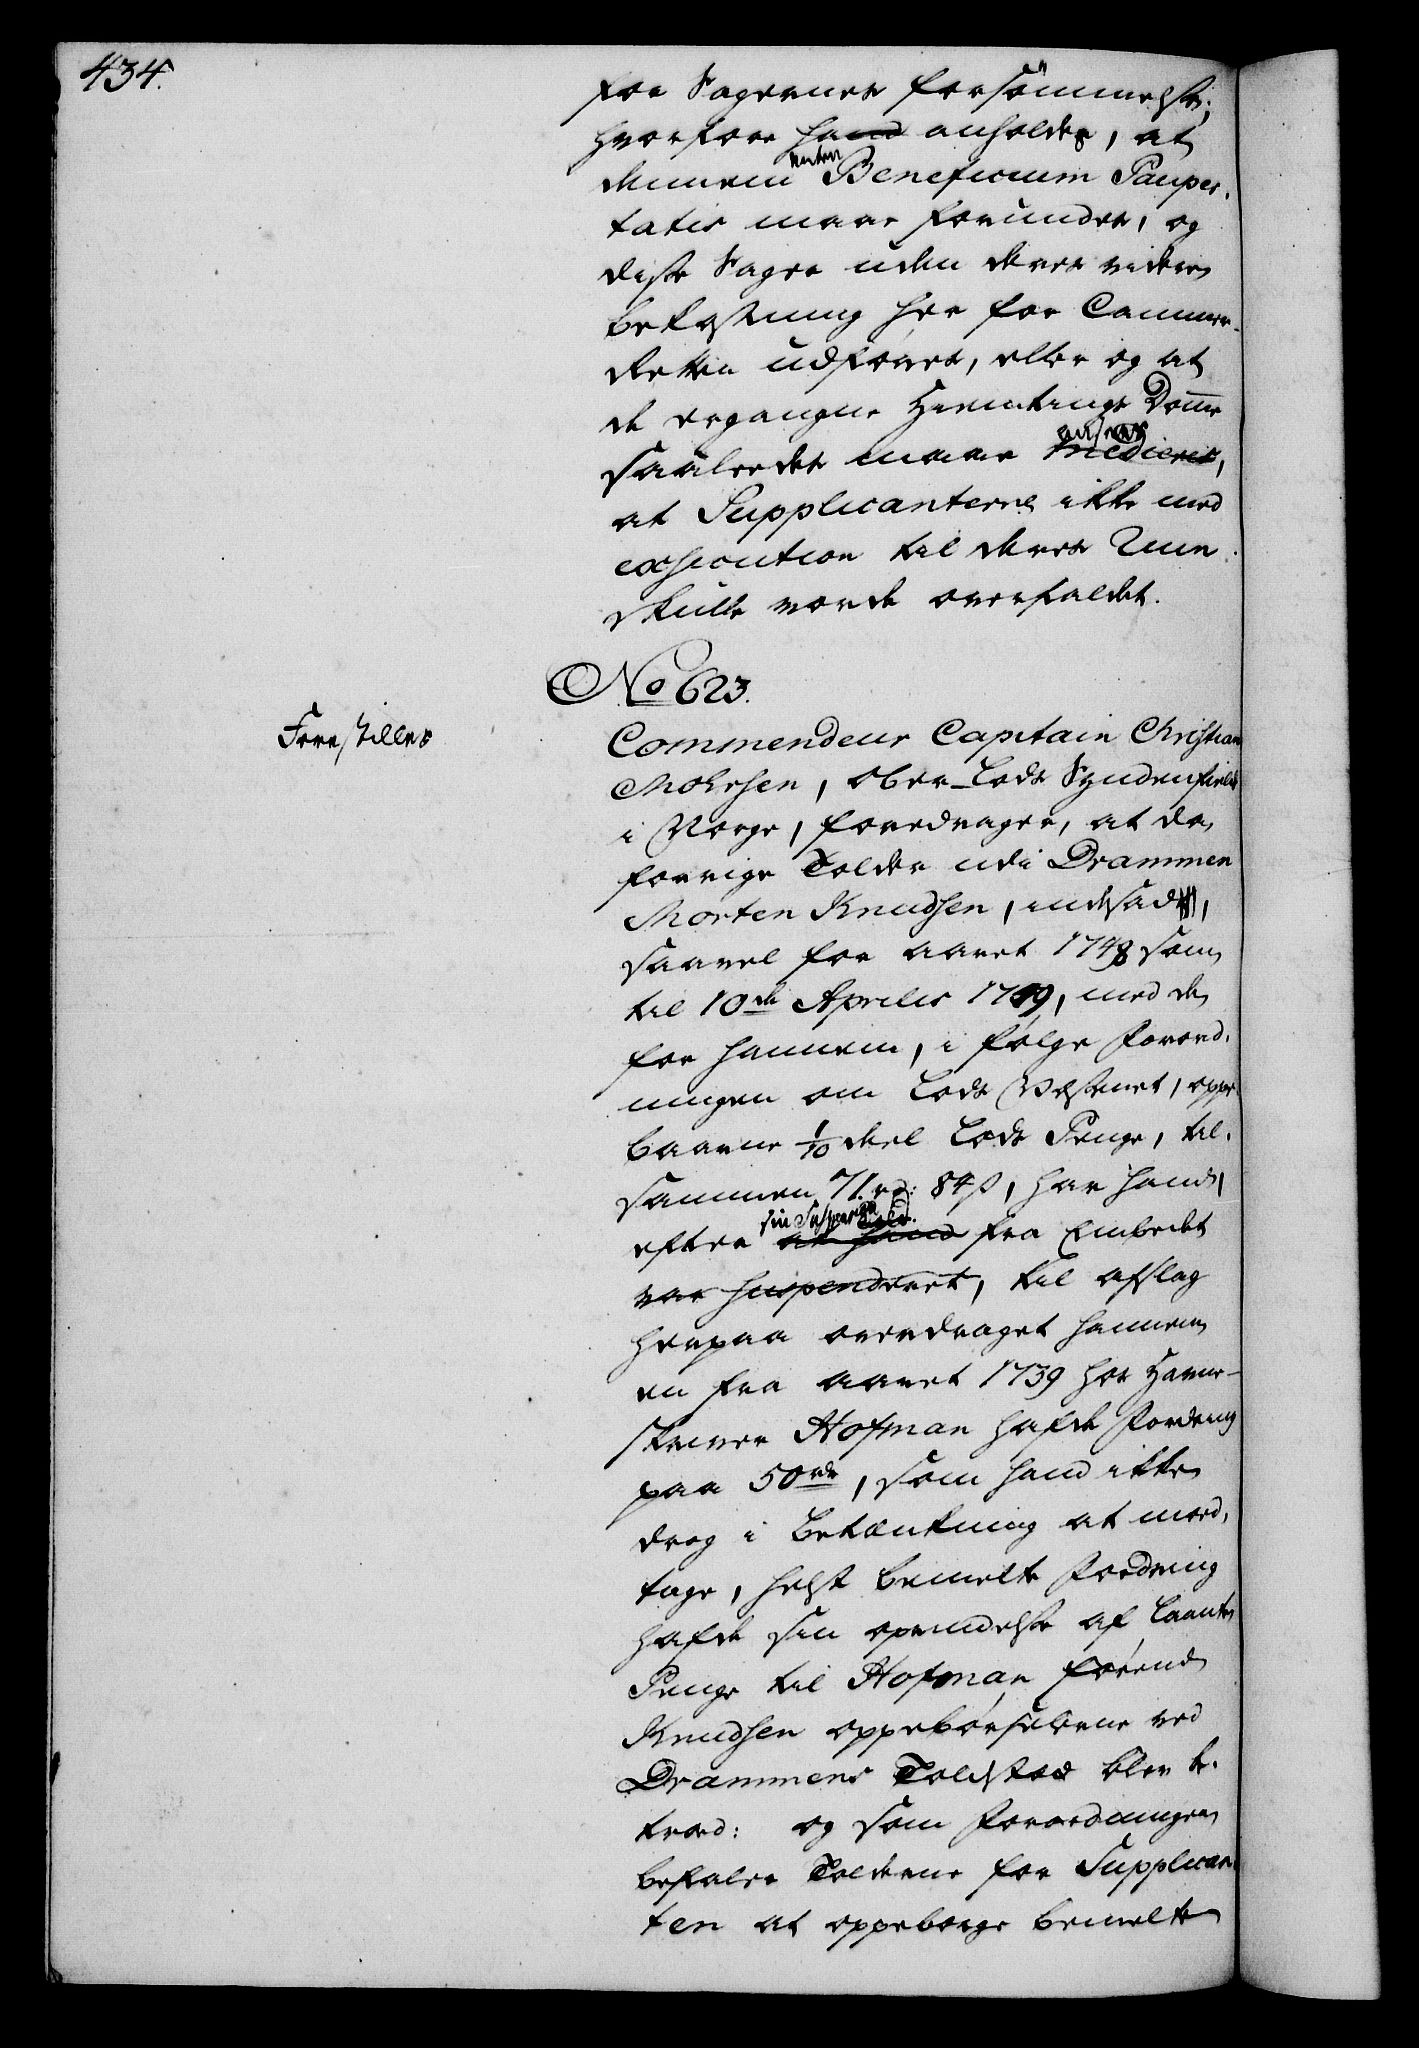 434.
for Sagernes forsömmelse;
hvorfore hand anholder, at
dennem enten Beneficium Pauper-
tatis maae forundes, og
disse Sager uden deres videre
bekostning her for Cammer-
Retten udføres, eller og at
de ergangne Hiemtings Domme
saaledes maae ansees medieres,
at Supplicanterne ikke med
exsecution til deres Ruin
skulle vorde overfaldet.
No 623.
Forestilles
Commendeur Capitain Christian
Mohrsen, Ober-Lods Syndenfields
i Norge, foredrager, at da
forrige Tolder udi Drammen
Morten Knudsen, indsad,
saavel for aaret 1748 som
til 10de Aprilis 1749, med de
for hannem, i følge Forord-
ningen om Lods Væsenet, oppe-
baarne 1/10 deel Lods Penge, til-
sammen 71 rd: 84 s, har hand,
efter sin Suspension at hand fra Embedet
var suspenderet, til afslag
herpaa overdraget hannem
en fra aaret 1739 hos Havne-
skriver Hofman hafde Fordring
paa 50 rdr, som hand ikke
drog i Betænkning at mod-
tage, helst bemelte Fordring
hafde sin oprindelse af Laante
Penge til Hofman førend
Knudsen oppebørselerne ved
Drammens Toldsted blev be-
troed: og som Forordningen
befaler Tolderne for Supplican-
ten at oppeberge bemelte